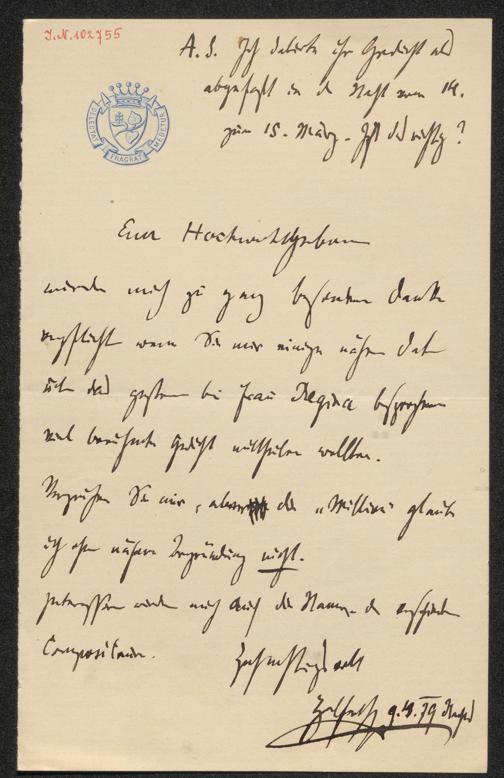 J.N. 102755
A. S. Ich datirte ihr Gedicht als
abgefaßt in d. Nacht vom 14.
zum 15. März. Ist das richtig?
FRAGRAT
Euer Hochwohlgeboren
würden mich zu ganz besonderem Danke
verpflichten wenn Sie mir einige nähere Daten
über das gestern bei Frau Regina besprochene
viel berühmte Gedicht mittheilen wollten.
Verzeihen Sie mir, aber die "Million" glaube
ich ohne nähere Begründung nicht.
Interessiren würden mich auch die Namen der
Compositeure.
Hochachtungsvoll
9.4.79